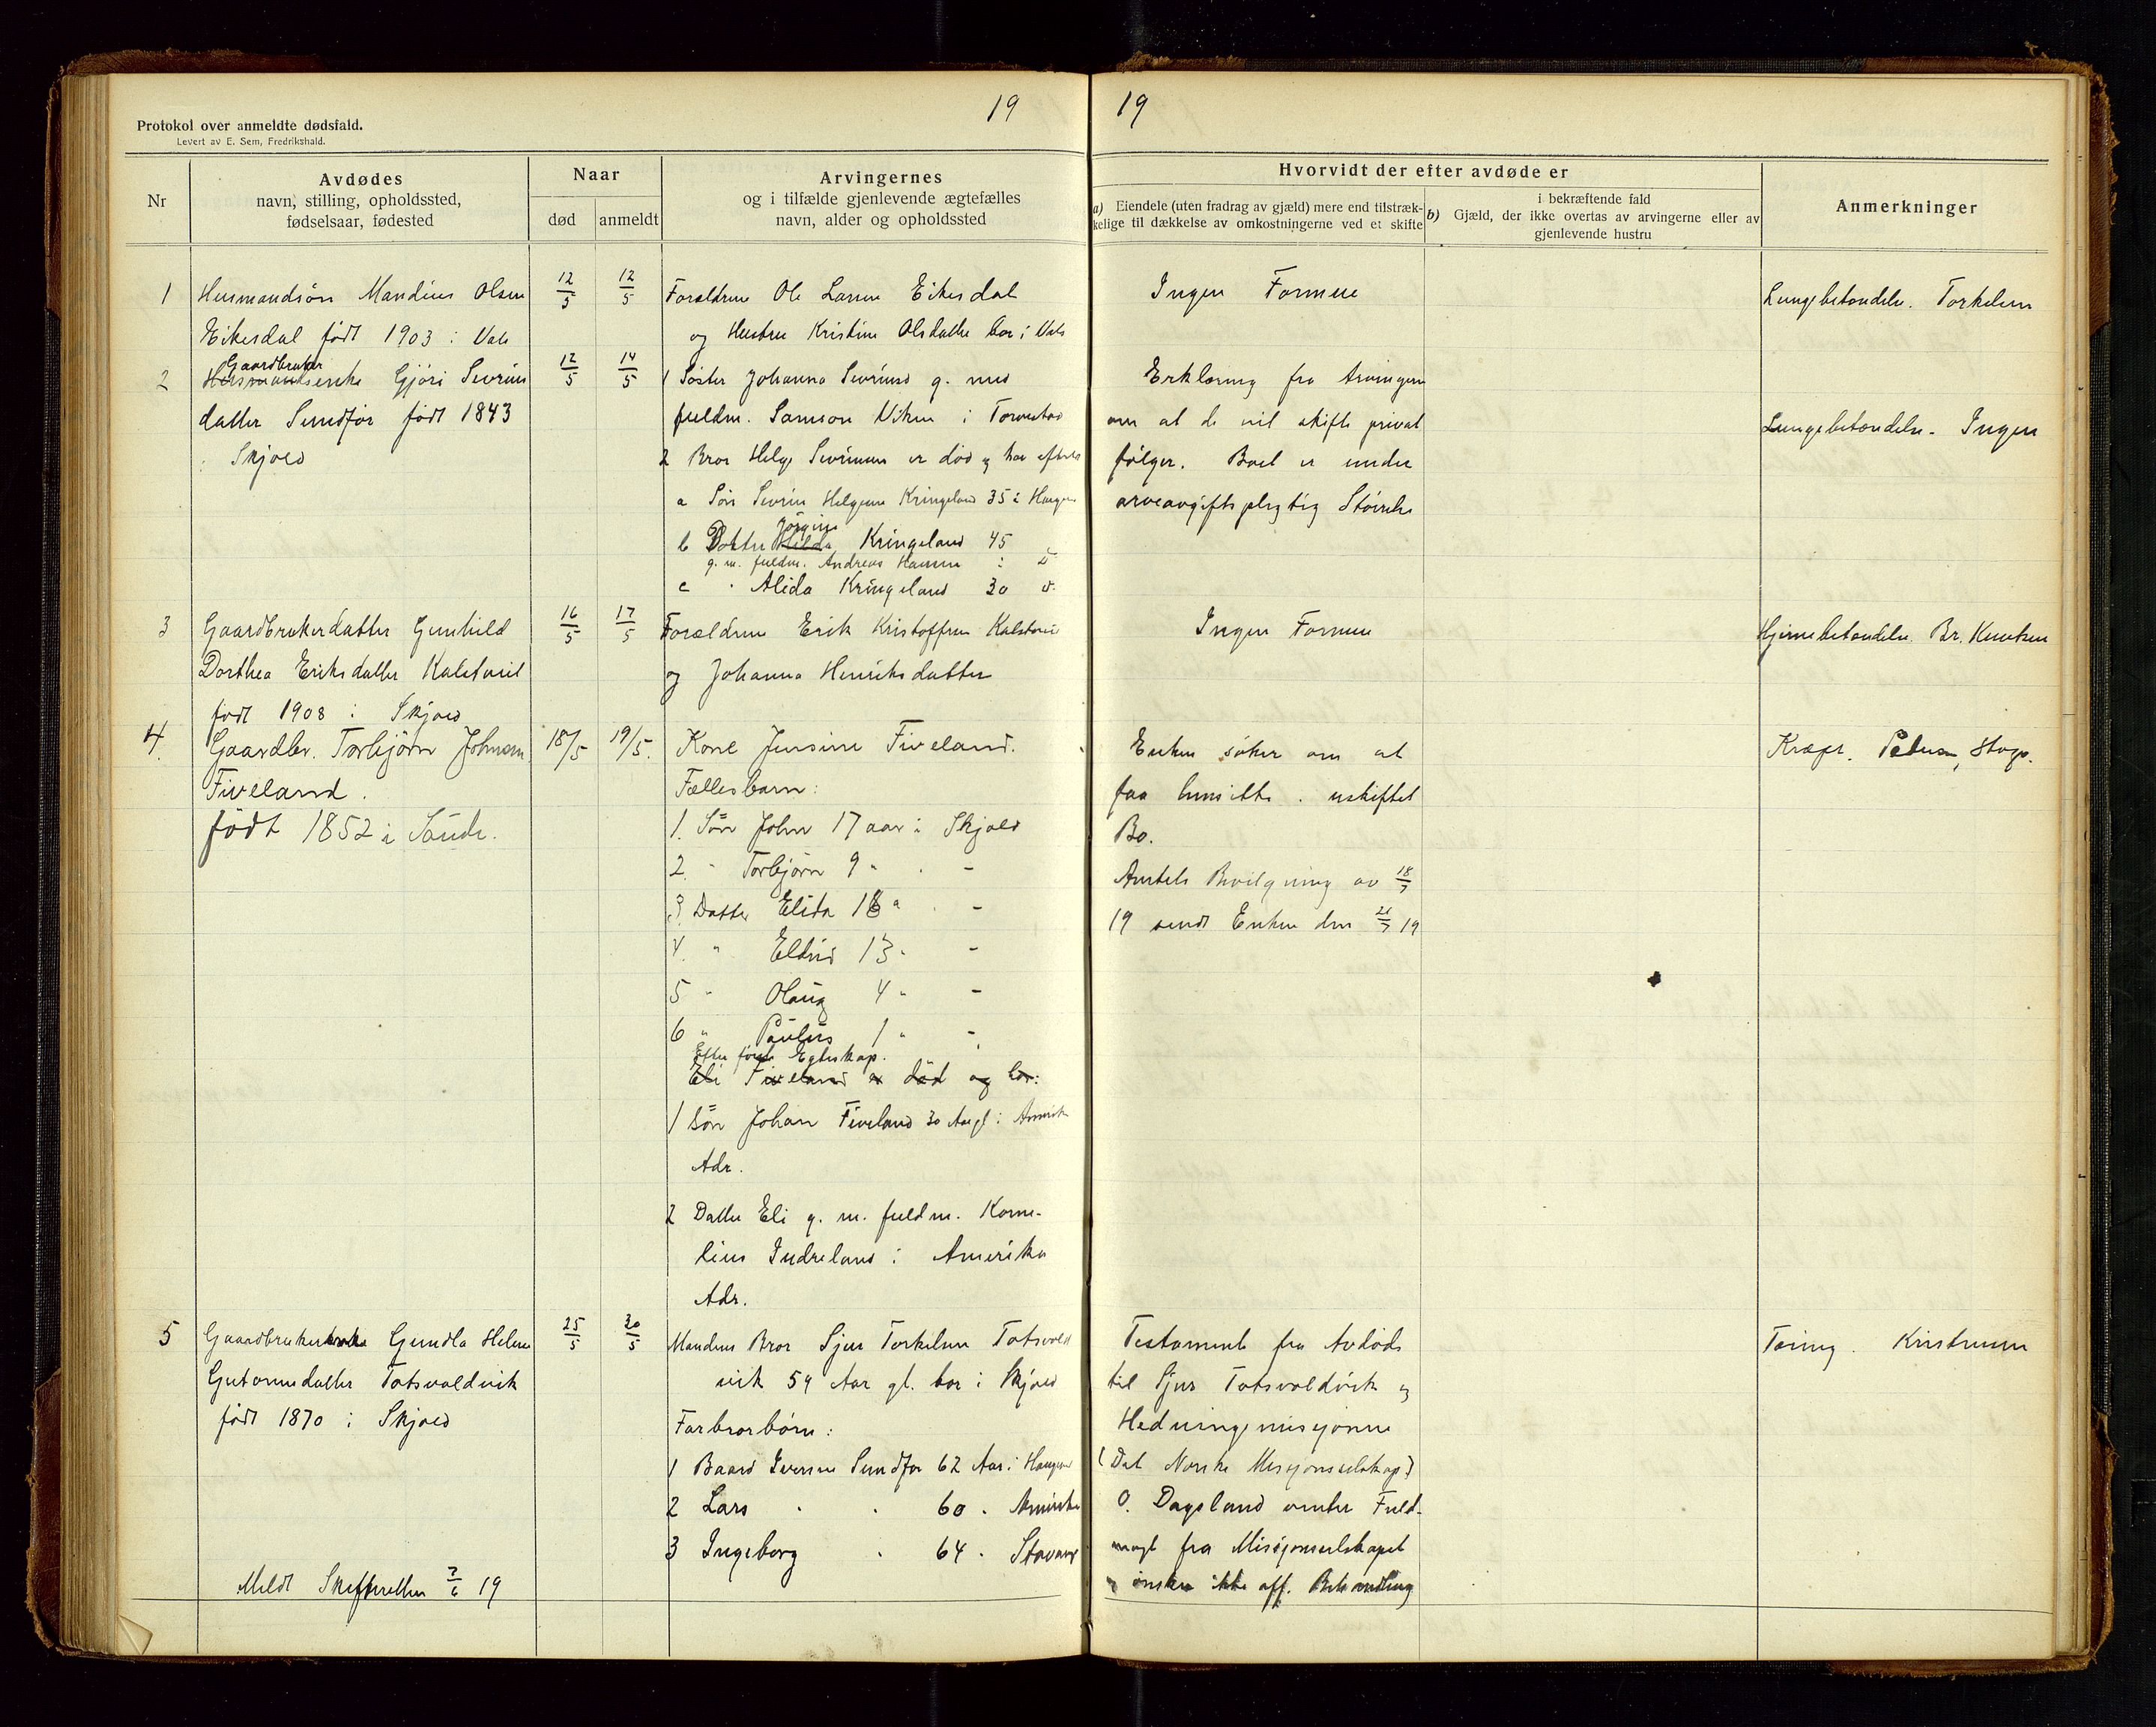 19
19
Protokol over anmeldte dødsfald.
Levert av E. Sem, Fredrikshald.
Nr
Avdødes
navn, stilling, opholdssted,
fødselsaar, fødested
Naar
død
anmeldt
Arvingernes
og i tilfælde gjenlevende ægtefælles
navn, alder og opholdssted
Hvorvidt der efter avdøde er
a) Eiendele (uten fradrag av gjæld) mere end tilstræk-
kelige til dækkelse av omkostningerne ved et skifte
i bekræftende fald
b) Gjæld, der ikke overtas av arvingerne eller av
gjenlevende hustru
Anmerkninger
1
Husmandsön Mandius Olsen
Eikesdal født 1903 i Vats
12/5
12/5
Forældrene Ole Larsen Eikesdal
og Hustru Kristine Olsdatter bor i Vats
Ingen Formue
Lungebetændelse. Torkelsen
2
Gaardbruker
Husmandsenke Gjöri Sevrine
datter Sundfør født 1843
i Skjold
12/5
14/5
1 Søster Johanna Sevrinsd g. med
fuldm. Samson Viken i Torvestad
2 Bror Helge Sevrinsen er død og har efterl
a Søn Sevrin Helgesen Kringeland 35 i Haugesu
Jörgine
b Datter Hilda Kringeland 45
g. m. fuldm. Andreas Hansen i
c " Alida Kringeland 30
Erklæring fra Arvingene
om at de vil skifte privat
følger. Boet er under
arveavgiftspligtig Størrelse
Lungebetændelse. Ingen
3
Gaardbrukerdatter Gunhild
Dorthea Eriksdatter Kalstveit
født 1908 i Skjold
16/5
17/5
Forældrene Erik Kristoffersen Kalstveit
og Johanna Henriksdatter
Ingen Formue
Hjernebetændelse. Br. Knutsen
4.
Gaardbr. Torbjörn Johnsen
Fiveland.
født 1852 i Sande.
18/5
19/5.
Kone Jensine Fiveland.
Fællesbarn:
1. Sön John 17 aar i Skjold
2. " Torbjörn 9 " . -
3 Datter Elida 18 " . -
4. " Eldrid 13 " -
5 " Olaug 4 " -
6 " Paulus 1 " -
Efter første Egteskap.
Eli Fiveland er död og bor:
1 Sön Johan Fiveland 30 Aar gl i Amerik
Adr.
2 Datter Eli g. m. fuldm. Korne-
lius Indreland i Amerika
Adr.
Enken søker om at
faa hensitte i uskiftet
Bo.
Amtets Bevilgning av 18/7
19 sendt Enken den 21/7 19
Kræft. Petersen, Stvgr.
5
Gaardbrukerenke Gundla Helene
Gutormsdatter Tatsvoldvik
født 1870 i Skjold
25/5
30/5
Mandens Bror Sjur Torkelsen Totsvold
vik 59 Aar gl. bor i Skjold
Farbrorbörn:
1 Baard Iversen Sundfør 62 Aar i Haugesu
2 Lars " " 60 " Amerika
3 Ingeborg " 64 " Stavang
Testamente fra Avdøde
til Sjur Totsvoldvik og
Hedningemissjonen
(Det Norske Missjonsselskap)
O. Dagsland venter Fuld-
magt fra Missjonsselskapet
og ønsker ikke off. Behandling
Tæring. Kristensen
Meldt Skifteretten 2/6 19